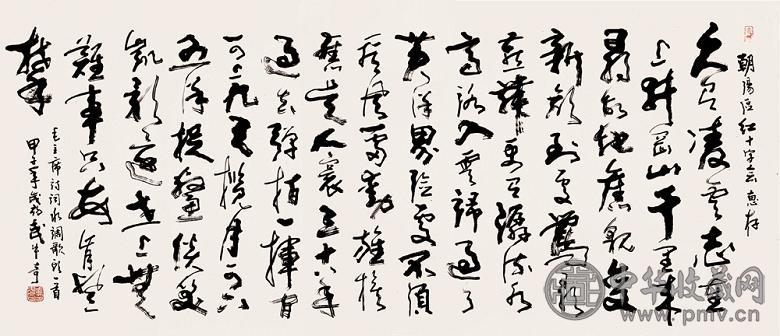 朝陽区红十字会 惠存
久有凌云志重
上井冈山千里来
寻故地旧貌变
新颜到处莺歌
燕舞更有潺潺流水
高路入云端过了
黄洋界险处不须
看风雷动旌旗
奋是人寰三十八年
过去弹指一挥间
可上九天揽月可下
五洋捉鳖谈笑
凯歌还世上无
难事只要肯登
攀
毛主席诗词水调歌头一首
甲子年 武中奇
中华收藏网
www.pmv.cn